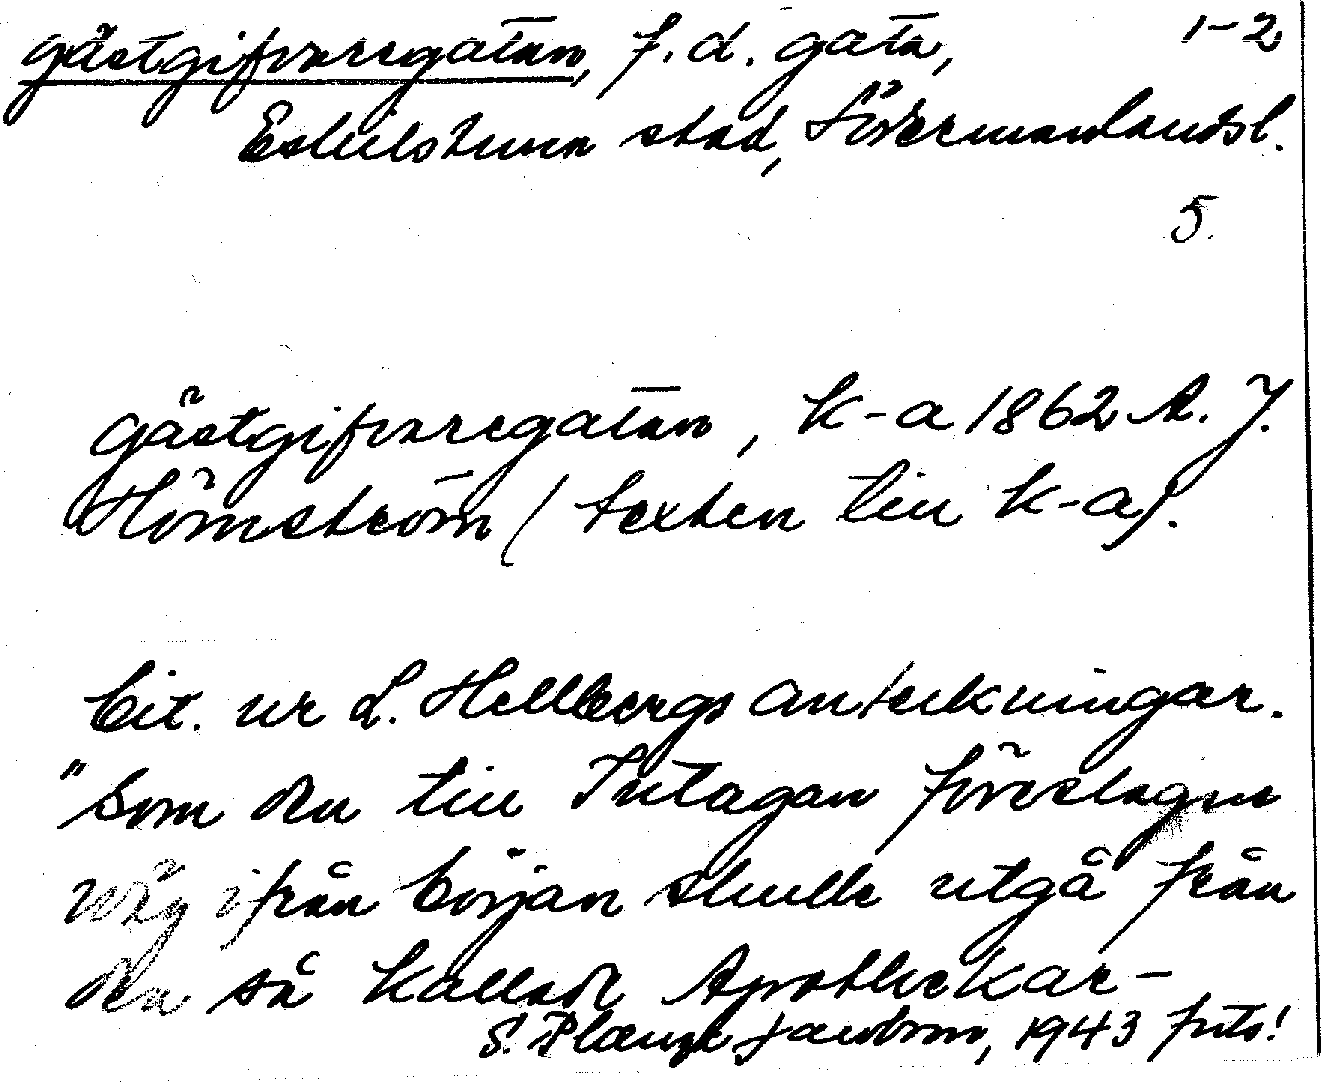 Gästgifvaregatan, f. d. gata, 1-2
Eskilstuna stad, Södermanlandsl.
5.
Gästgifvaregatan, k-a 1862 A. J.
Hörnström (texten till k-a).
Cit. ur L. Hellbergs anteckningar.
"Som den till Intagan föreslagne
väg ifrån början skulle utgå från
den så kallade Apothekar-
S. Jacobson, 1943 forts!